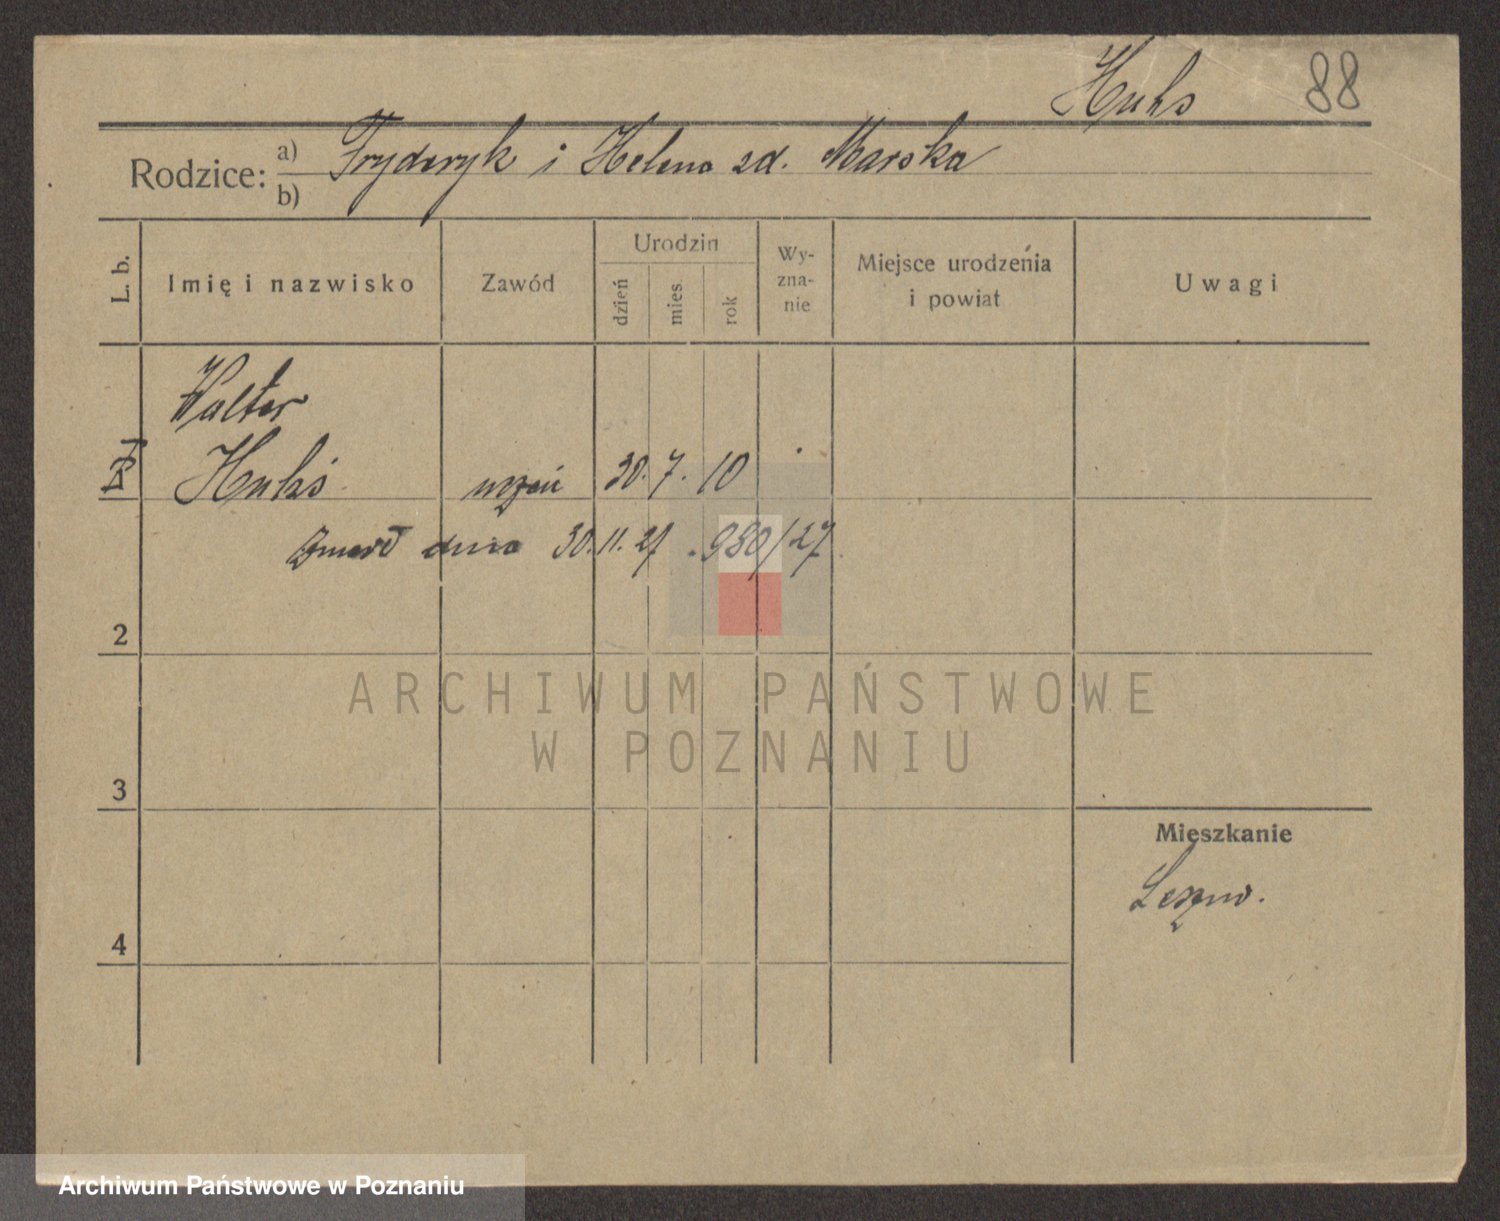 Huhs 88
Rodzice: a) Fryderyk i Helena zd. Marska
b)
L. b. Imię i nazwisko Zawód Urodzin dzień mies rok Wy-zna-nie Miejsce urodzenia i powiat Uwagi
Walter
uczeń 30. 7. 10
Zmarł dnia 30.11.27 . 980/27
2
ARCHIWUM PAŃSTWOWE
W POZNANIU
3
Mieszkanie
Leszno.
4
Archiwum Państwowe w Poznaniu